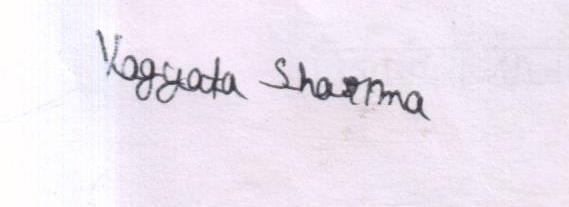 Yagyata Sharma